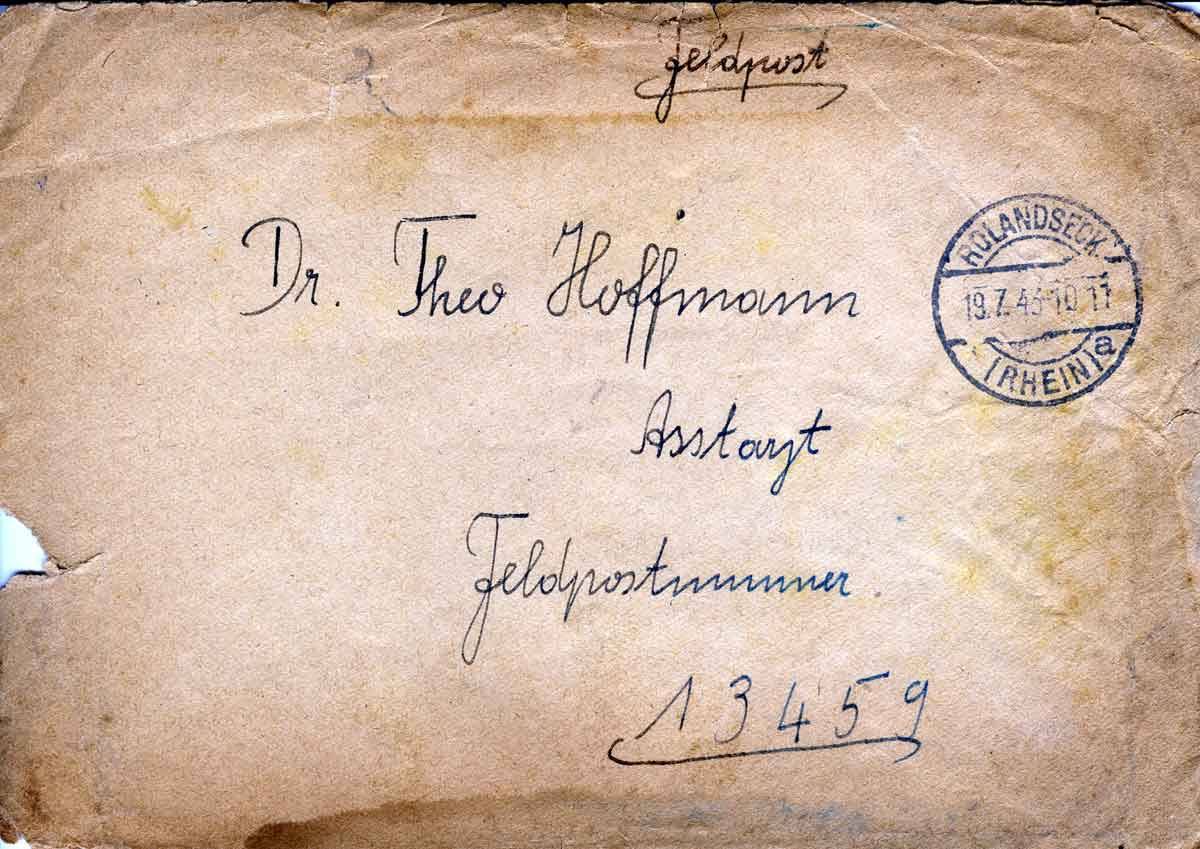 Feldpost
Dr. Theo Hoffmann
ROLANDSECK
19.7.43-10 11
(RHEIN) a
Asstarzt
Feldpostnummer
13459